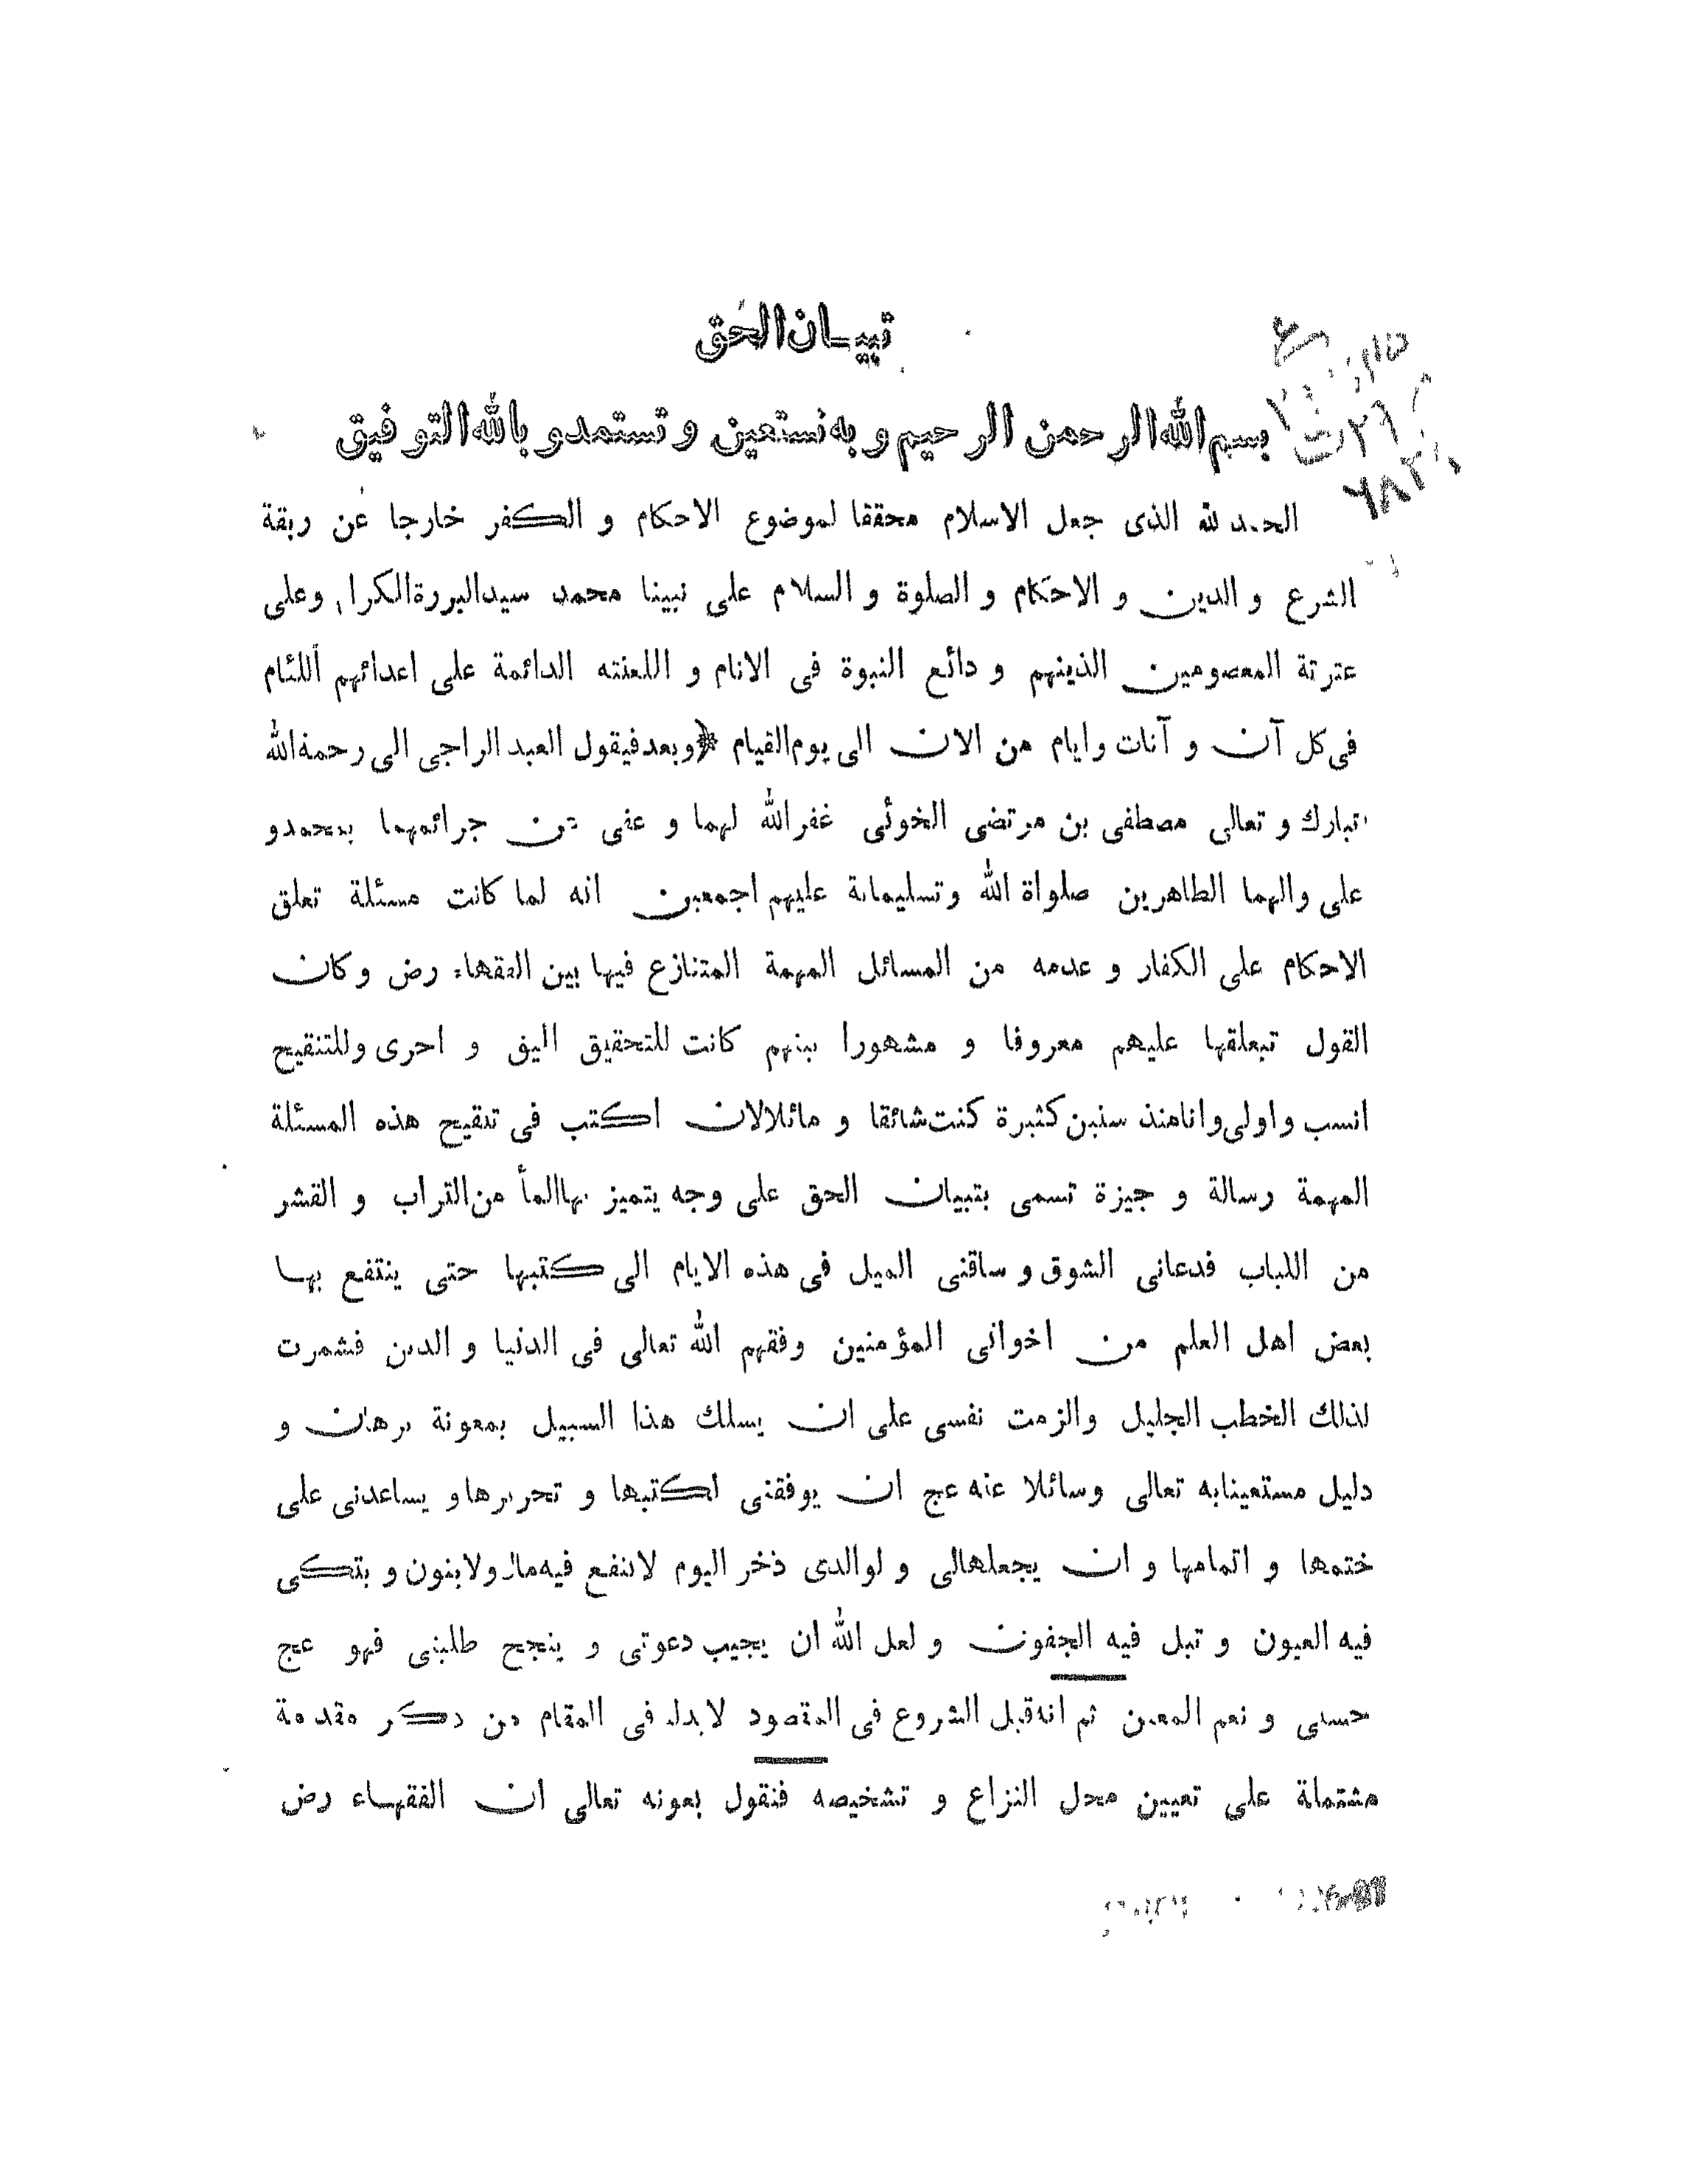 تبيان الحق
بسم الله الرحمن الرحيم و به نستعين و تستمد و بالله التوفيق
الحمد لله الذى جعل الاسلام محققا لموضوع الاحكام و الكفر خارجا عن ربقة
الشرع و الدين و الاحكام و الصلوة و السلام على نبينا محمد سيد البررة الكرام وعلى
عترتة المعصومين الذينهم و دائع النبوة فى الانام و اللعنته الدائمة على اعدائهم اللئام
فى كل آن و آنات و ايام من الان الى يوم القيام * و بعد فيقول العبد الراجى الى رحمة الله
تبارك و تعالى مصطفى بن مرتضى الخوئى غفر الله لهما و عفى عن جرائمهما بمحمد و
على و الهما الطاهرين صلواة الله و تسليماته عليهم اجمعين انه لما كانت مسئلة تعلق
الاحكام على الكفار و عدمه من المسائل المهمة المتنازع فيها بين الفقهاء رض و كان
القول تبعلقها عليهم معروفا و مشهورا بينهم كانت للتحقيق اليق و احرى وللتنقيح
انسب و اولى و انا منذ سنين كثيرة كنت شائقا و مائلا لان اكتب فى تنقيح هذه المسئلة
المهمة رسالة و جيزة تسمى بتبيان الحق على وجه يتميز بها المأ من التراب و القشر
من اللباب فدعانى الشوق و ساقنى الميل فى هذه الايام الى كتبها حتى ينتفع بها
بعض اهل العلم من اخوانى المؤمنين وفقهم الله تعالى فى الدنيا و الدين فشمرت
لذلك الخطب الجليل والزمت نفسى على ان يسلك هذا السبيل بمعونة برهان و
دليل مستعينا به تعالى وسائلا عنه عج ان يوفقنى لكتبها و تحريرها و يساعدنى على
ختمها و اتمامها و ان يجعلها لى و لوالدى ذخر اليوم لا ينفع فيه مال ولا بنون و بتكى
فيه العيون و تبل فيه الجفون و لعل الله ان يجيب دعوتى و ينجح طلبتى فهو عج
حسبى و نعم المعين ثم انه قبل الشروع فى المقصود لابد لى فى المقام من ذكر مقدمة
مشتملة على تعيين محل النزاع و تشخيصه فنقول بعونه تعالى ان الفقهاء رض